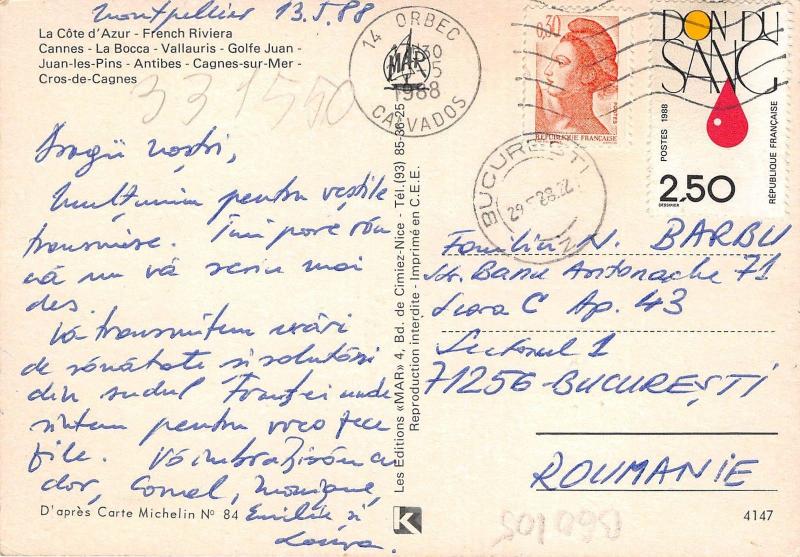 Montpellier 13.5.88
La Côte d'Azur - French Riviera
Cannes - La Bocca - Vallauris - Golfe Juan -
Juan-les-Pins - Antibes - Cagnes-sur-Mer -
Cros-de-Cagnes
331550
Dragii noștri,
Mulțumim pentru veștile
transmise. Îmi pare rău
că nu vă scriu mai
des.
Vă transmitem urări
de sănătate și salutări
din sudul Franței unde
sîntem pentru vreo zece
zile. Vă îmbrățișăm cu
dor, Cornel, Monique,
Emilie și
Laura.
D'après Carte Michelin Nº 84
Les Editions «MAR» 4, Bd. de Cimiez-Nice - Tél.(93) 85-36-25
Reproduction interdite - Imprimé en C.E.E.
14 ORBEC
MAR
1988
CALVADOS
0,30
POSTES
RÉPUBLIQUE FRANÇAISE
DON DU
SANG
POSTES 1988
RÉPUBLIQUE FRANÇAISE
2,50
BUCUREȘTI
Familia N. BARBU
Str. Banu Antonache 71
Scara C Ap. 43
Sectorul 1
71256-BUCUREȘTI
ROUMANIE
K
4147